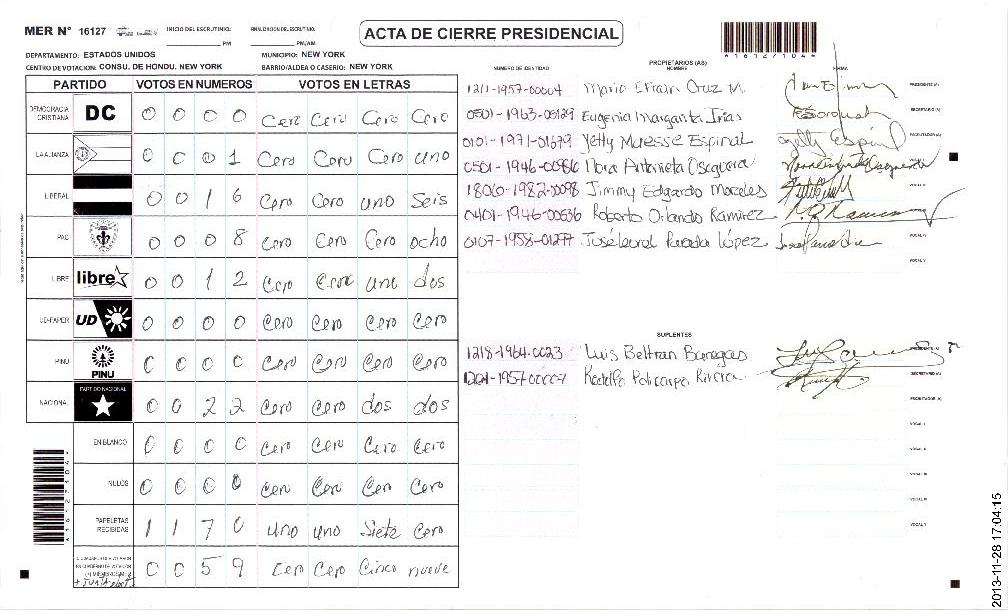 MER N° 16127 INICIO DEL ESCRUTINIO: PM FINALIZACIÓN DEL ESCRUTINIO: PM/AM
ACTA DE CIERRE PRESIDENCIAL
*16127104*
DEPARTAMENTO: ESTADOS UNIDOS MUNICIPIO: NEW YORK
CENTRO DE VOTACION: CONSU. DE HONDU. NEW YORK BARRIO/ALDEA O CASERIO: NEW YORK
PARTIDO VOTOS EN NUMEROS VOTOS EN LETRAS
DEMOCRACIA CRISTIANA DC 0 0 0 0 Cero Cero Cero Cero
LA ALIANZA 0 0 0 1 Cero Cero Cero uno
LIBERAL 0 0 1 6 Cero Cero uno Seis
PAC 0 0 0 8 Cero Cero Cero ocho
LIBRE libre 0 0 1 2 Cero Cero uno dos
UD-FAPER UD 0 0 0 0 Cero Cero Cero Cero
PINU PINU 0 0 0 0 Cero Cero Cero Cero
NACIONAL PARTIDO NACIONAL 0 0 2 2 Cero Cero dos dos
EN BLANCO 0 0 0 0 Cero Cero Cero Cero
NULOS 0 0 0 0 Cero Cero Cero Cero
PAPELETAS RECIBIDAS 1 1 7 0 uno uno Siete Cero
0 0 5 9 Cero Cero Cinco nueve
*16127104*
PROPIETARIOS (AS)
NUMERO DE IDENTIDAD NOMBRE FIRMA
1211-1957-00004 Mario Efrain Cruz M. PRESIDENTE (A)
0501-1963-05129 Eugenia Margarita Irías SECRETARIO (A)
0101-1971-01679 Yetty Maesse Espinal ESCRUTADOR (A)
0501-1946-00986 Nora Antonieta Oseguera VOCAL I
1806-1982-00098 Jimmy Edgardo Morales VOCAL II
0401-1946-00036 Roberto Orlando Ramirez
0107-1958-01277 José Leonel Parada López VOCAL IV
VOCAL V
SUPLENTES
1218-1964-0023 Luis Beltran Banegas PRESIDENTE (A)
1201-1957-00007 Rodolfo Policarpo Rivera SECRETARIO (A)
ESCRUTADOR (A)
VOCAL I
VOCAL II
VOCAL III
VOCAL IV
VOCAL V
2013-11-28 17:04:15